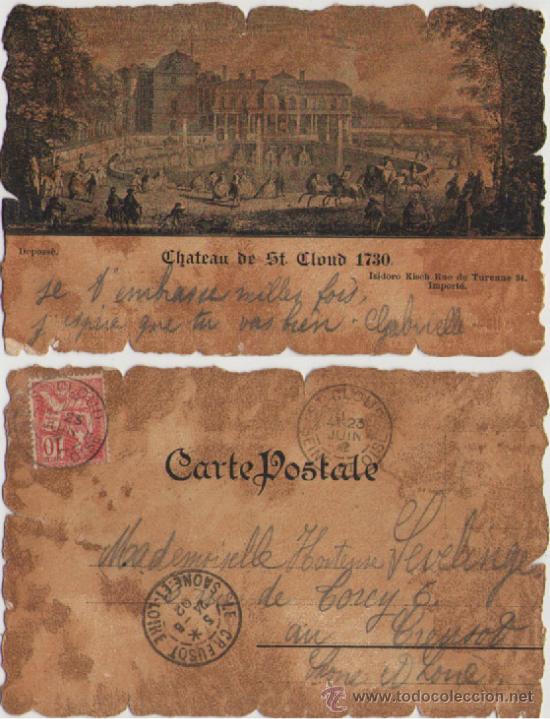 Deposé.
Chateau de St Cloud 1730.
Isidore Kisch Rue de Turenne 34.
Importé.
je t'embrasse milles fois,
j'espère que tu vas bien - Gabrielle
10
23
JUIN
Carte Postale
Mademoiselle Hortense
de Torcy 6
au Creusot
Saône et Loire
LE CREUSOT
SAONE-ET-LOIRE
www.todocoleccion.net